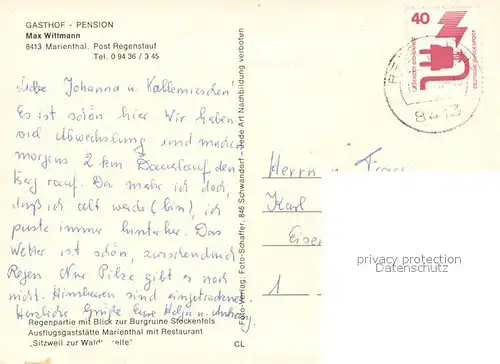 GASTHOF - PENSION
Max Wittmann
8413 Marienthal. Post Regenstauf
Tel. 0 94 36 / 3 45
Liebe Johanna u. Kallemienchen!
Es ist schön hier. Wir haben
viel Abwechslung und machen
morgens 2 km Dauerlauf den
Berg rauf. Da merke ich doch,
daß ich alt werde (bin), ich
puste immer hinterher. Das
Wetter ist schön, zwischendurch
Regen. Nur Pilze gibt es noch
nicht. Himbeeren sind eingetrocknet.
Herzliche Grüße Eure u.
Regenpartie mit Blick zur Burgruine Stockenfels
Ausflugsgaststätte Marienthal mit Restaurant
"Sitzweil zur
CL
Foto-Verlag: Foto-Schaffer, 846 Schwandorf - Jede Art Nachbildung verboten
40
DEUTSCHE BUNDESPOST
8413
Herrn u. Frau
Karl
1
privacy protection
Datenschutz